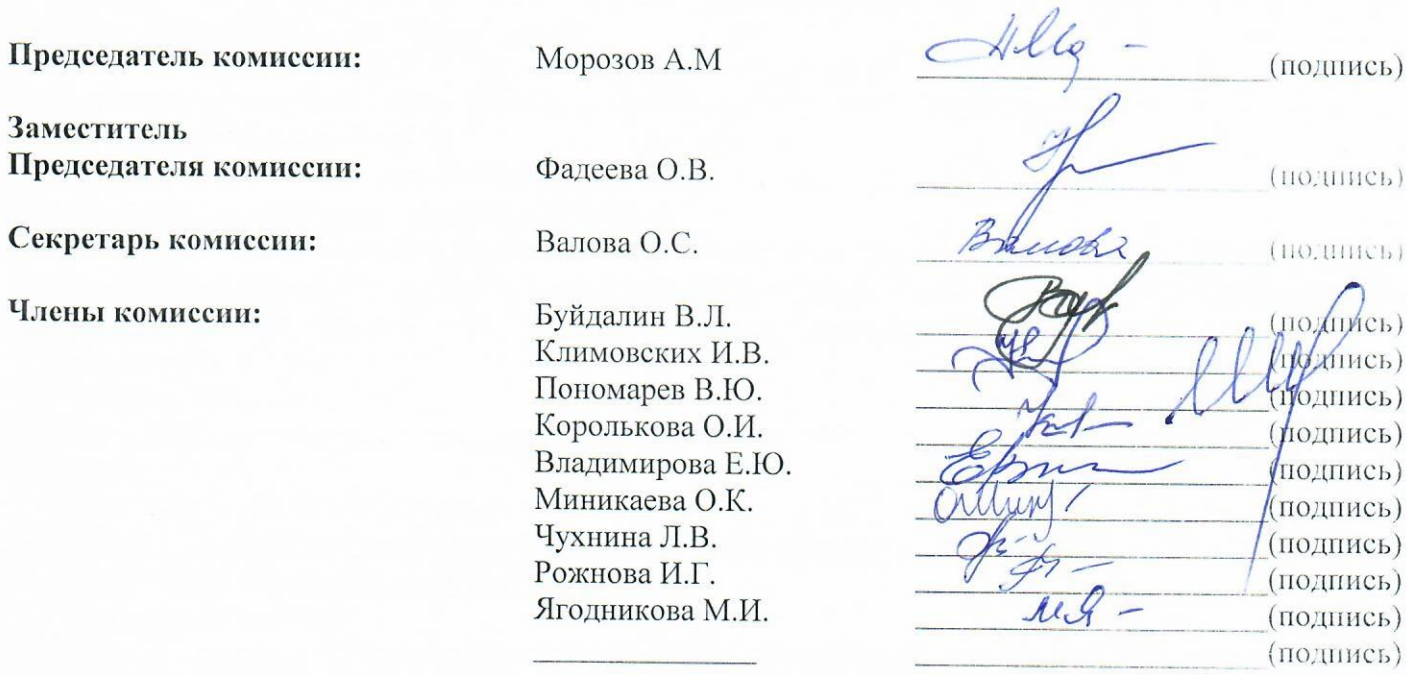 Председатель комиссии: Морозов А.М (подпись)
Заместитель
Председателя комиссии: Фадеева О.В. (подпись)
Секретарь комиссии: Валова О.С. Валова (подпись)
Члены комиссии: Буйдалин В.Л. (подпись)
Климовских И.В. (подпись)
Пономарев В.Ю. (подпись)
Королькова О.И. (подпись)
Владимирова Е.Ю. (подпись)
Миникаева О.К. (подпись)
Чухнина Л.В. (подпись)
Рожнова И.Г. (подпись)
Ягодникова М.И. (подпись)
(подпись)